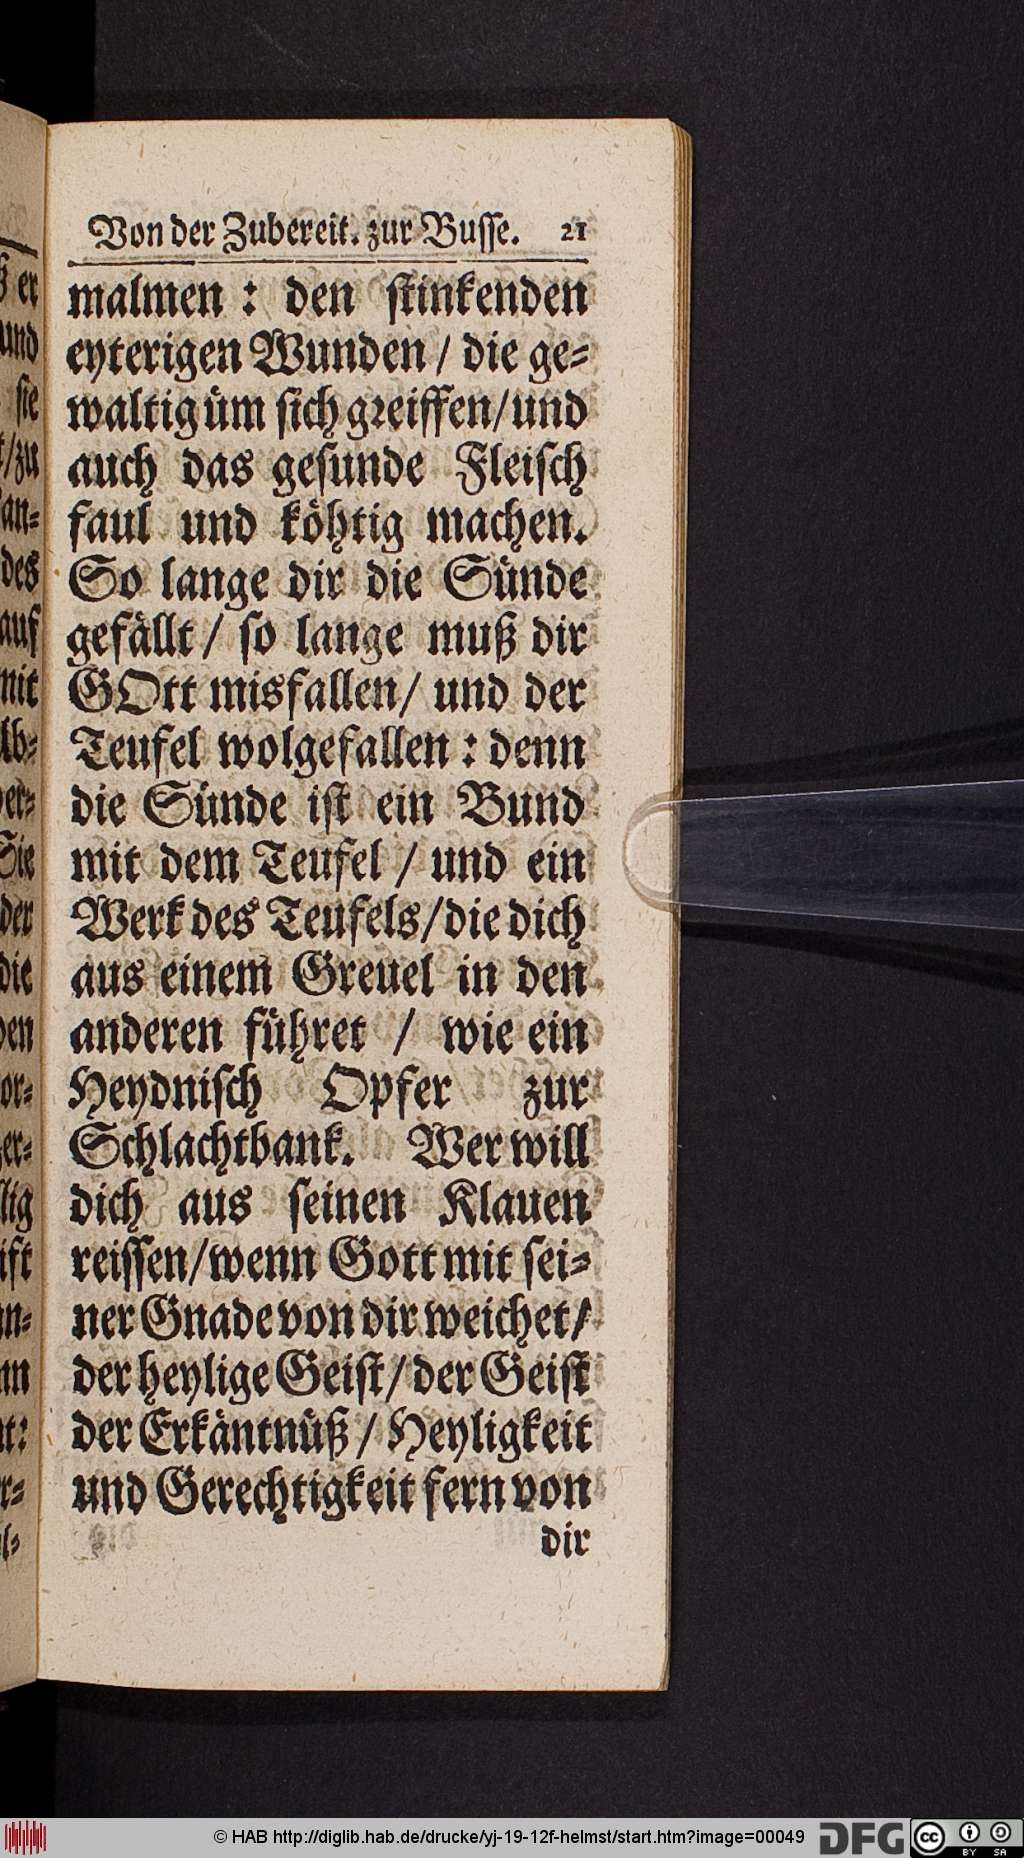 Von der Zubereit. zur Busse. 21
malmen : den stinkenden
eyterigen Wunden / die ge-
waltig üm sich greiffen/und
auch das gesunde Fleisch
faul und köhtig machen.
So lange dir die Sünde
gefällt / so lange muß dir
GOtt misfallen/ und der
Teufel wolgefallen : denn
die Sünde ist ein Bund
mit dem Teufel / und ein
Werk des Teufels/die dich
aus einem Greuel in den
anderen führet / wie ein
Heydnisch Opfer zur
Schlachtbank. Wer will
dich aus seinen Klauen
reissen/wenn Gott mit sei-
ner Gnade von dir weichet/
der heylige Geist/ der Geist
der Erkäntnüß / Heyligkeit
und Gerechtigkeit fern von
dir
© HAB http://diglib.hab.de/drucke/yj-19-12f-helmst/start.htm?image=00049
DFG
cc BY SA